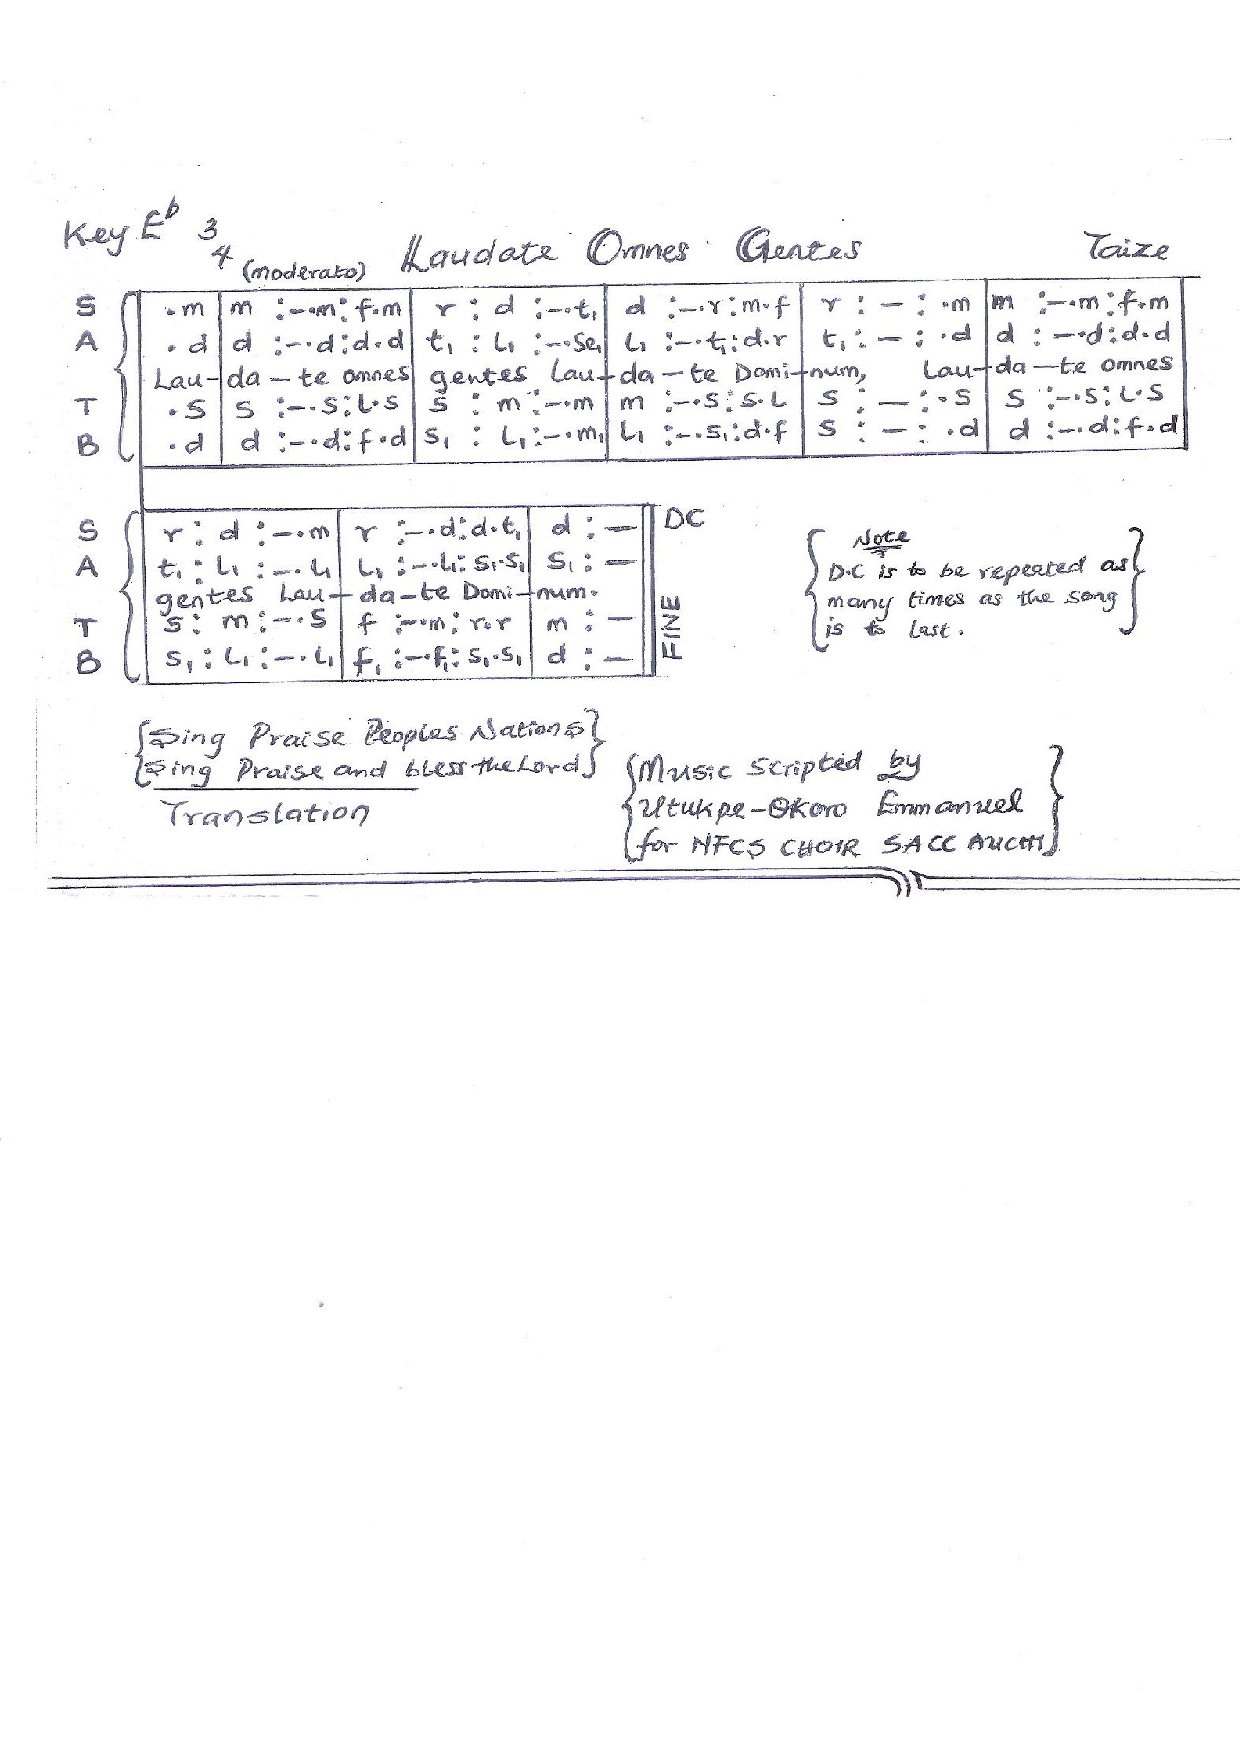 Key E♭ 3/4 (moderato) Laudate Omnes Gentes Taize
S .m | m :-.m: f.m | r : d :-.t₁ | d :-.r: m.f | r : - : .m | m :-.m: f.m
A .d | d :-.d: d.d | t₁ : l₁ :-.se₁ | l₁ :-.t₁: d.r | t₁ : - : .d | d :-.d: d.d
Lau-da-te omnes gentes Lau-da-te Domi-num, Lau-da-te omnes
T .s | s :-.s: l.s | s : m :-.m | m :-.s: s.l | s : - : .s | s :-.s: l.s
B .d | d :-.d: f.d | s₁ : l₁ :-.m₁ | l₁ :-.s₁: d.f | s : - : .d | d :-.d: f.d
S r : d :-.m | r :-.d: d.t₁ | d : - DC
A t₁ : l₁ :-.l₁ | l₁ :-.l₁: s₁.s₁ | s₁ : -
gentes Lau-da-te Domi-num.
T s : m :-.s | f :-.m: r.r | m : -
B s₁ : l₁ :-.l₁ | f₁ :-.f₁: s₁.s₁ | d : -
FINE
Note
D.C is to be repeated as
many times as the song
is to last.
Sing Praise Peoples Nations
Sing Praise and bless the Lord
Translation
Music Scripted by
Utukpe-Okoro Emmanuel
for NFCS CHOIR SACC AUCHI